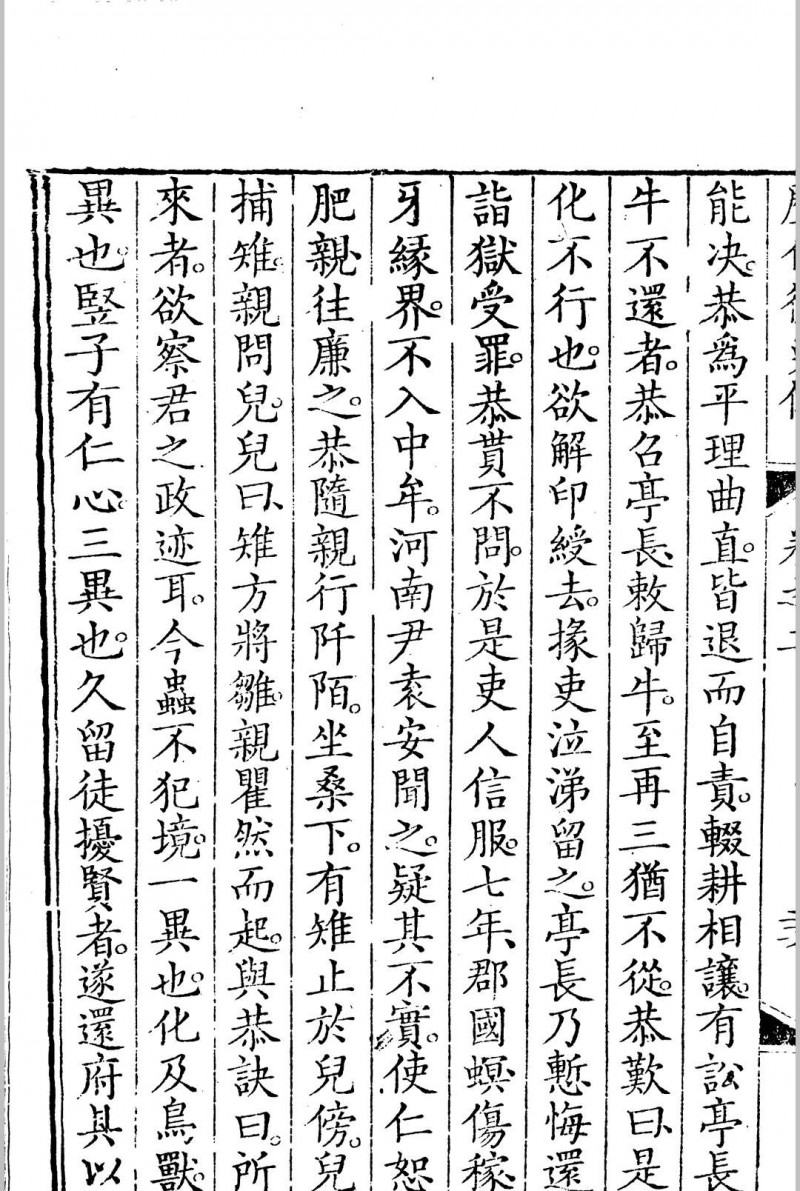 能决。恭爲平理曲直。皆退而自責。輟耕相讓。有訟亭長
牛不還者。恭召亭長、敕歸牛。至再三猶不從。恭歎曰、是
化不行也。欲解印綬去。掾吏泣涕留之。亭長乃慙悔還
詣獄受罪。恭貰不問。於是吏人信服。七年、郡國螟傷稼
牙緣界。不入中牟。河南尹袁安聞之。疑其不實。使仁恕
肥親、往廉之。恭隨親行阡陌。坐桑下。有雉止於兒傍。兒
捕雉。親問兒。兒曰、雉方將雛。親瞿然而起。與恭訣曰。所
來者。欲察君之政迹耳。今蟲不犯境。一異也。化及鳥獸。
異也。豎子有仁心。三異也。久留徒擾賢者。遂還府具以